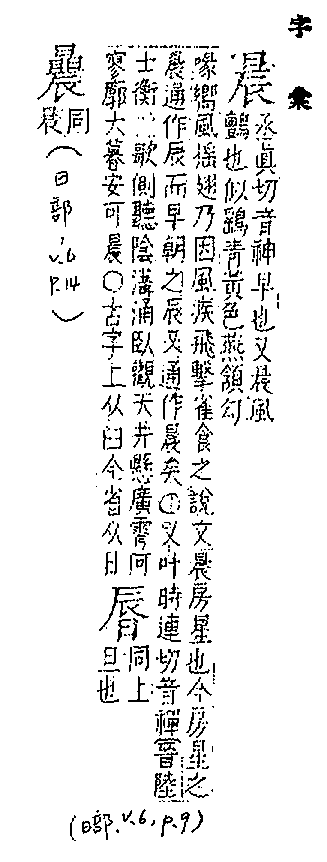 字彙
晨丞眞切音神早也又晨風
鸇也似鷂青黃色燕頷勾
喙嚮風揺翅乃因風疾飛擊雀食之說文晨房星也今房星之
晨通作辰而早朝之辰又通作晨矣○又叶時連切音禪晉陸
士衡歌側聽陰溝涌臥觀天井懸廣霄何
寥廓大暮安可晨○古字上从臼今省从日
㫳同上旦也
曟同晨
(日部,v.6 p.14)
(日部,v.6,p.9)